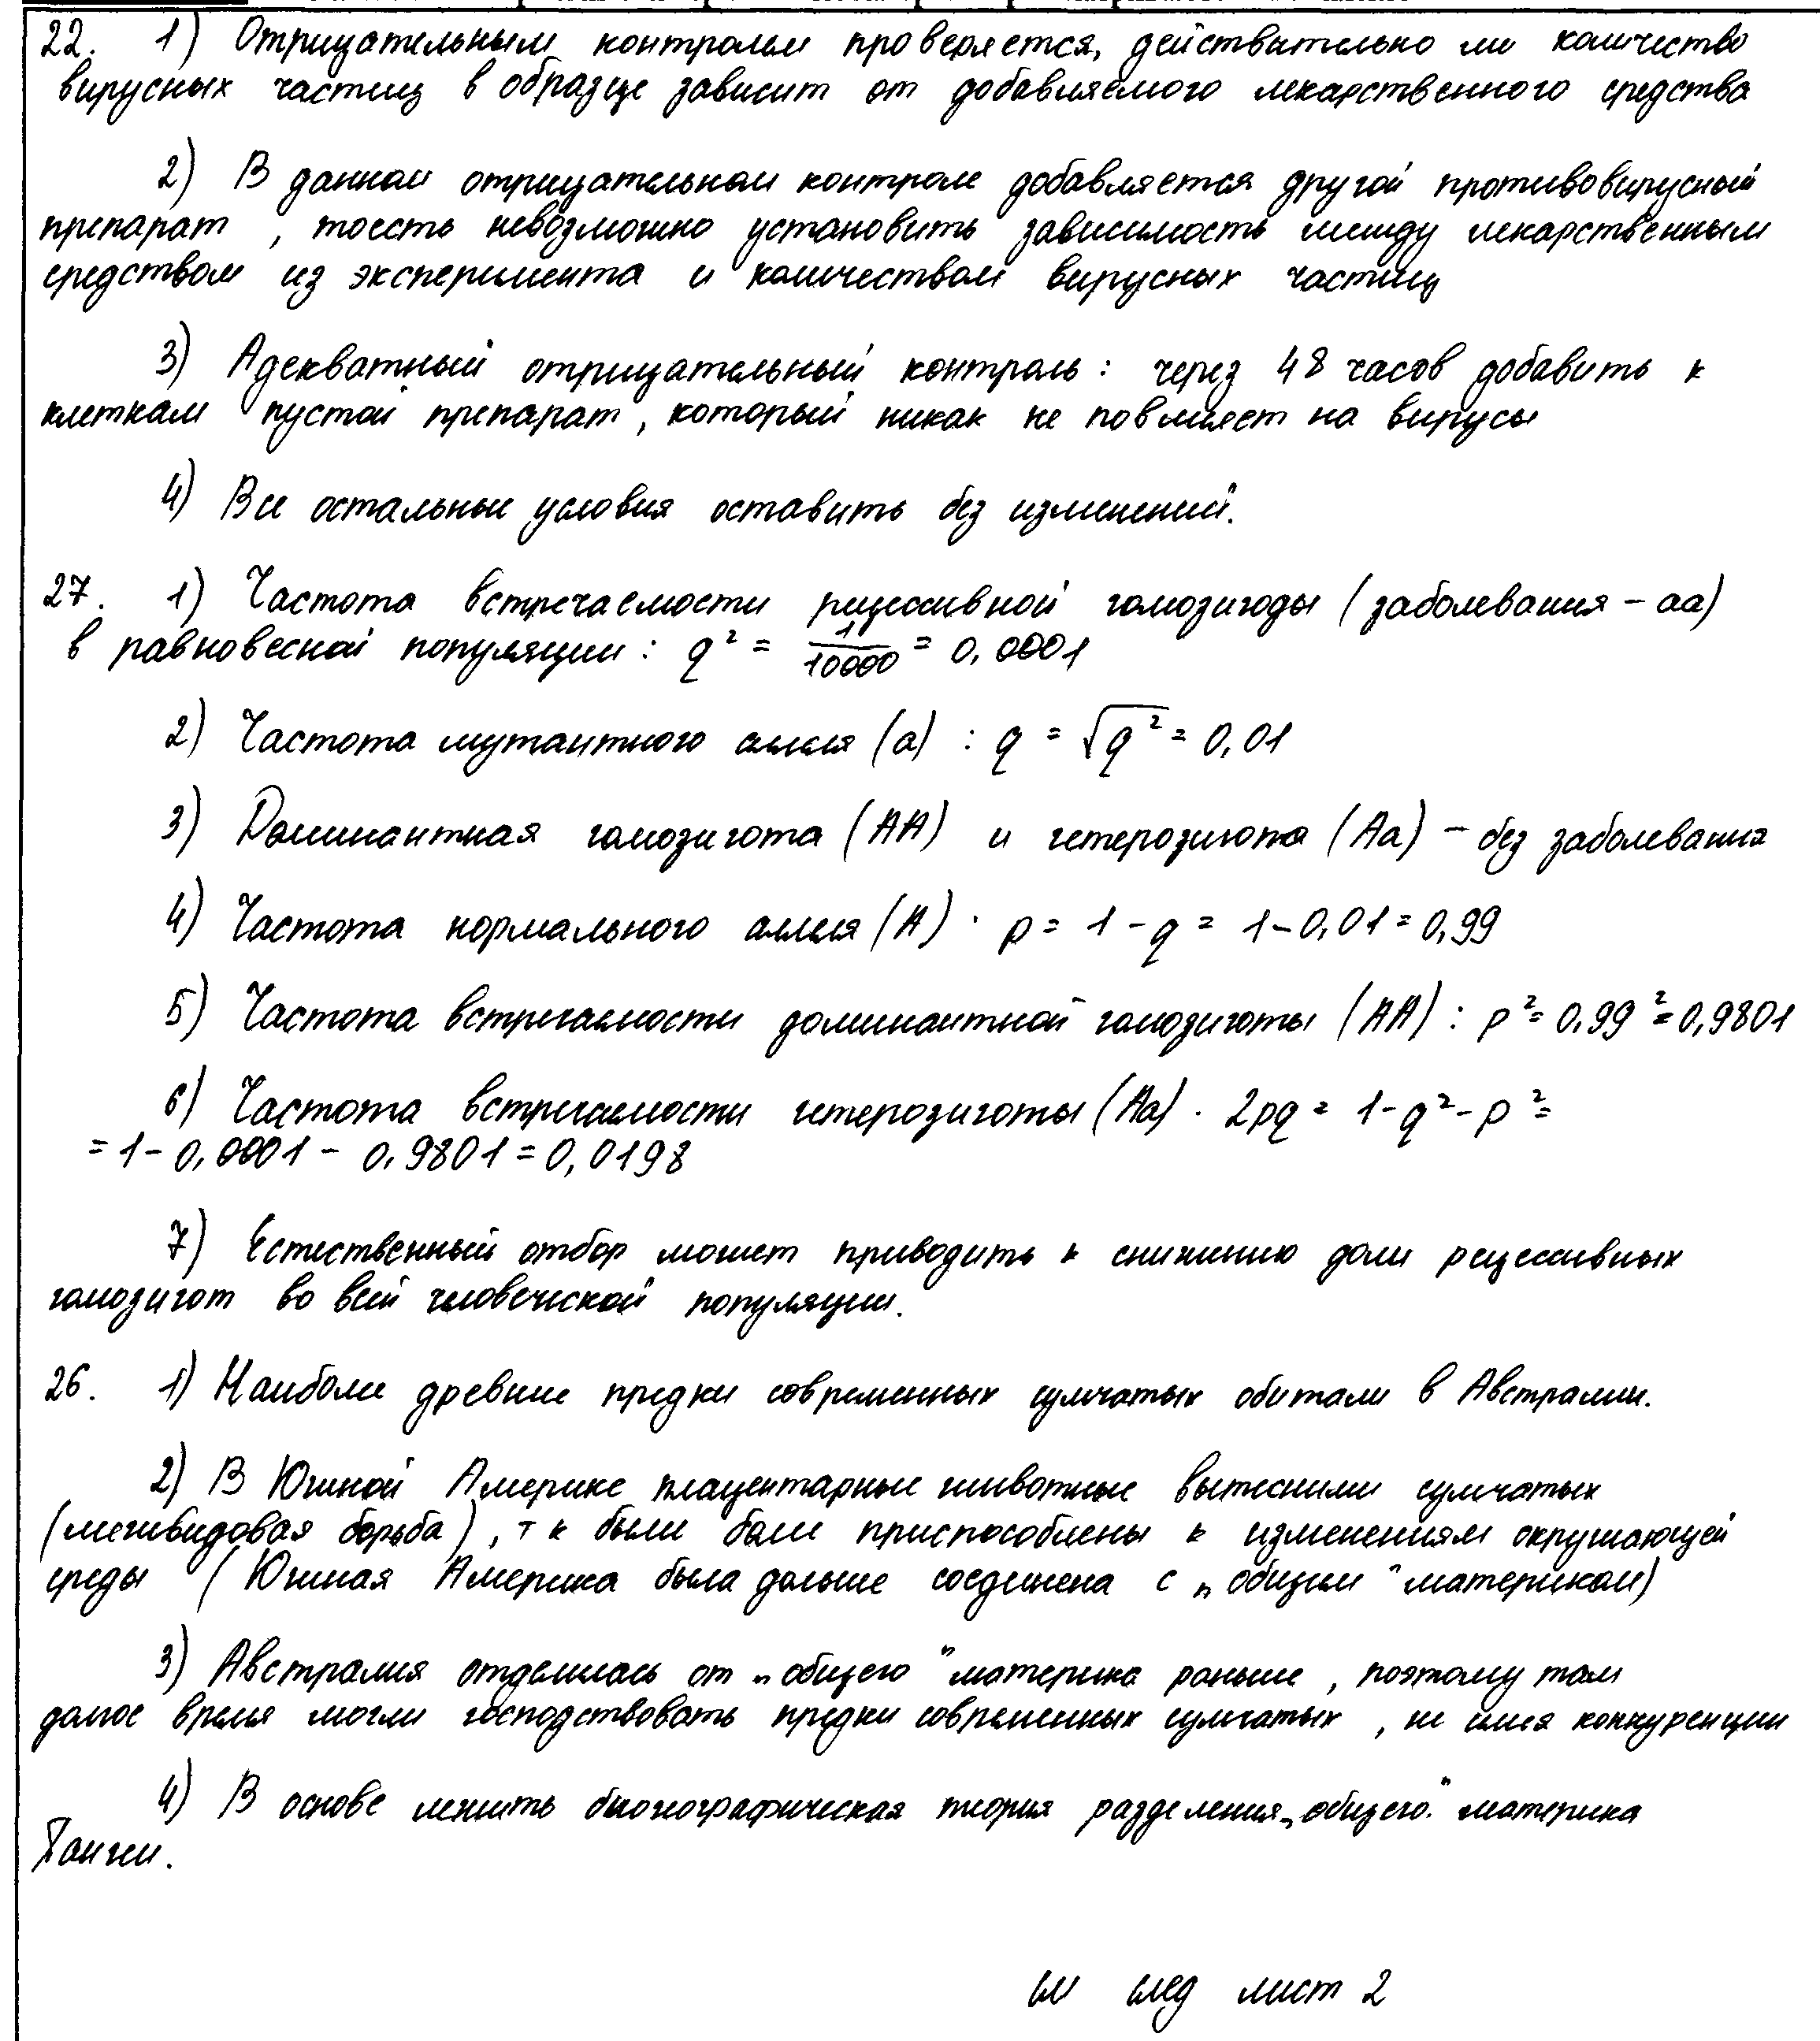 22. 1) Отрицательным контролем проверяется, действительно ли количество
вирусных частиц в образце зависит от добавляемого лекарственного средства
2) В данном отрицательном контроле добавляется другой противовирусный
препарат, тоесть невозможно установить зависимость между лекарственным
средством из эксперимента и количеством вирусных частиц
3) Адекватный отрицательный контроль: через 48 часов добавить к
клеткам пустой препарат, который никак не повлияет на вирусы
4) Все остальные условия оставить без изменений.
27. 1) Частота встречаемости рецессивной гомозигоды (заболевания - aa)
в равновесной популяции: q² = 1/10000 = 0,0001
2) Частота мутантного аллеля (a) : q = √q² = 0,01
3) Доминантная гомозигота (AA) и гетерозигота (Aa) - без заболевания
4) Частота нормального аллеля (A) : p = 1 - q = 1-0,01 = 0,99
5) Частота встречаемости доминантной гомозиготы (AA) : p² = 0,99² = 0,9801
6) Частота встречаемости гетерозиготы (Aa) : 2pq = 1-q²-p² =
= 1 - 0,0001 - 0,9801 = 0,0198
7) Естественный отбор может приводить к снижению доли рецессивных
гомозигот во всей человеческой популяции.
26. 1) Наиболее древние предки современных сумчатых обитали в Австралии.
2) В Южной Америке плацентарные животные вытеснили сумчатых
(межвидовая борьба), т к были более приспособлены к изменениям окружающей
среды (Южная Америка была дольше соединена с „общим" материком)
3) Австралия отделилась от „общего" материка раньше, поэтому там
долгое время могли господствовать предки современных сумчатых, не имея конкуренции
4) В основе лежить биогеографическая теория разделения „общего" материка
Пангеи.
см след лист 2